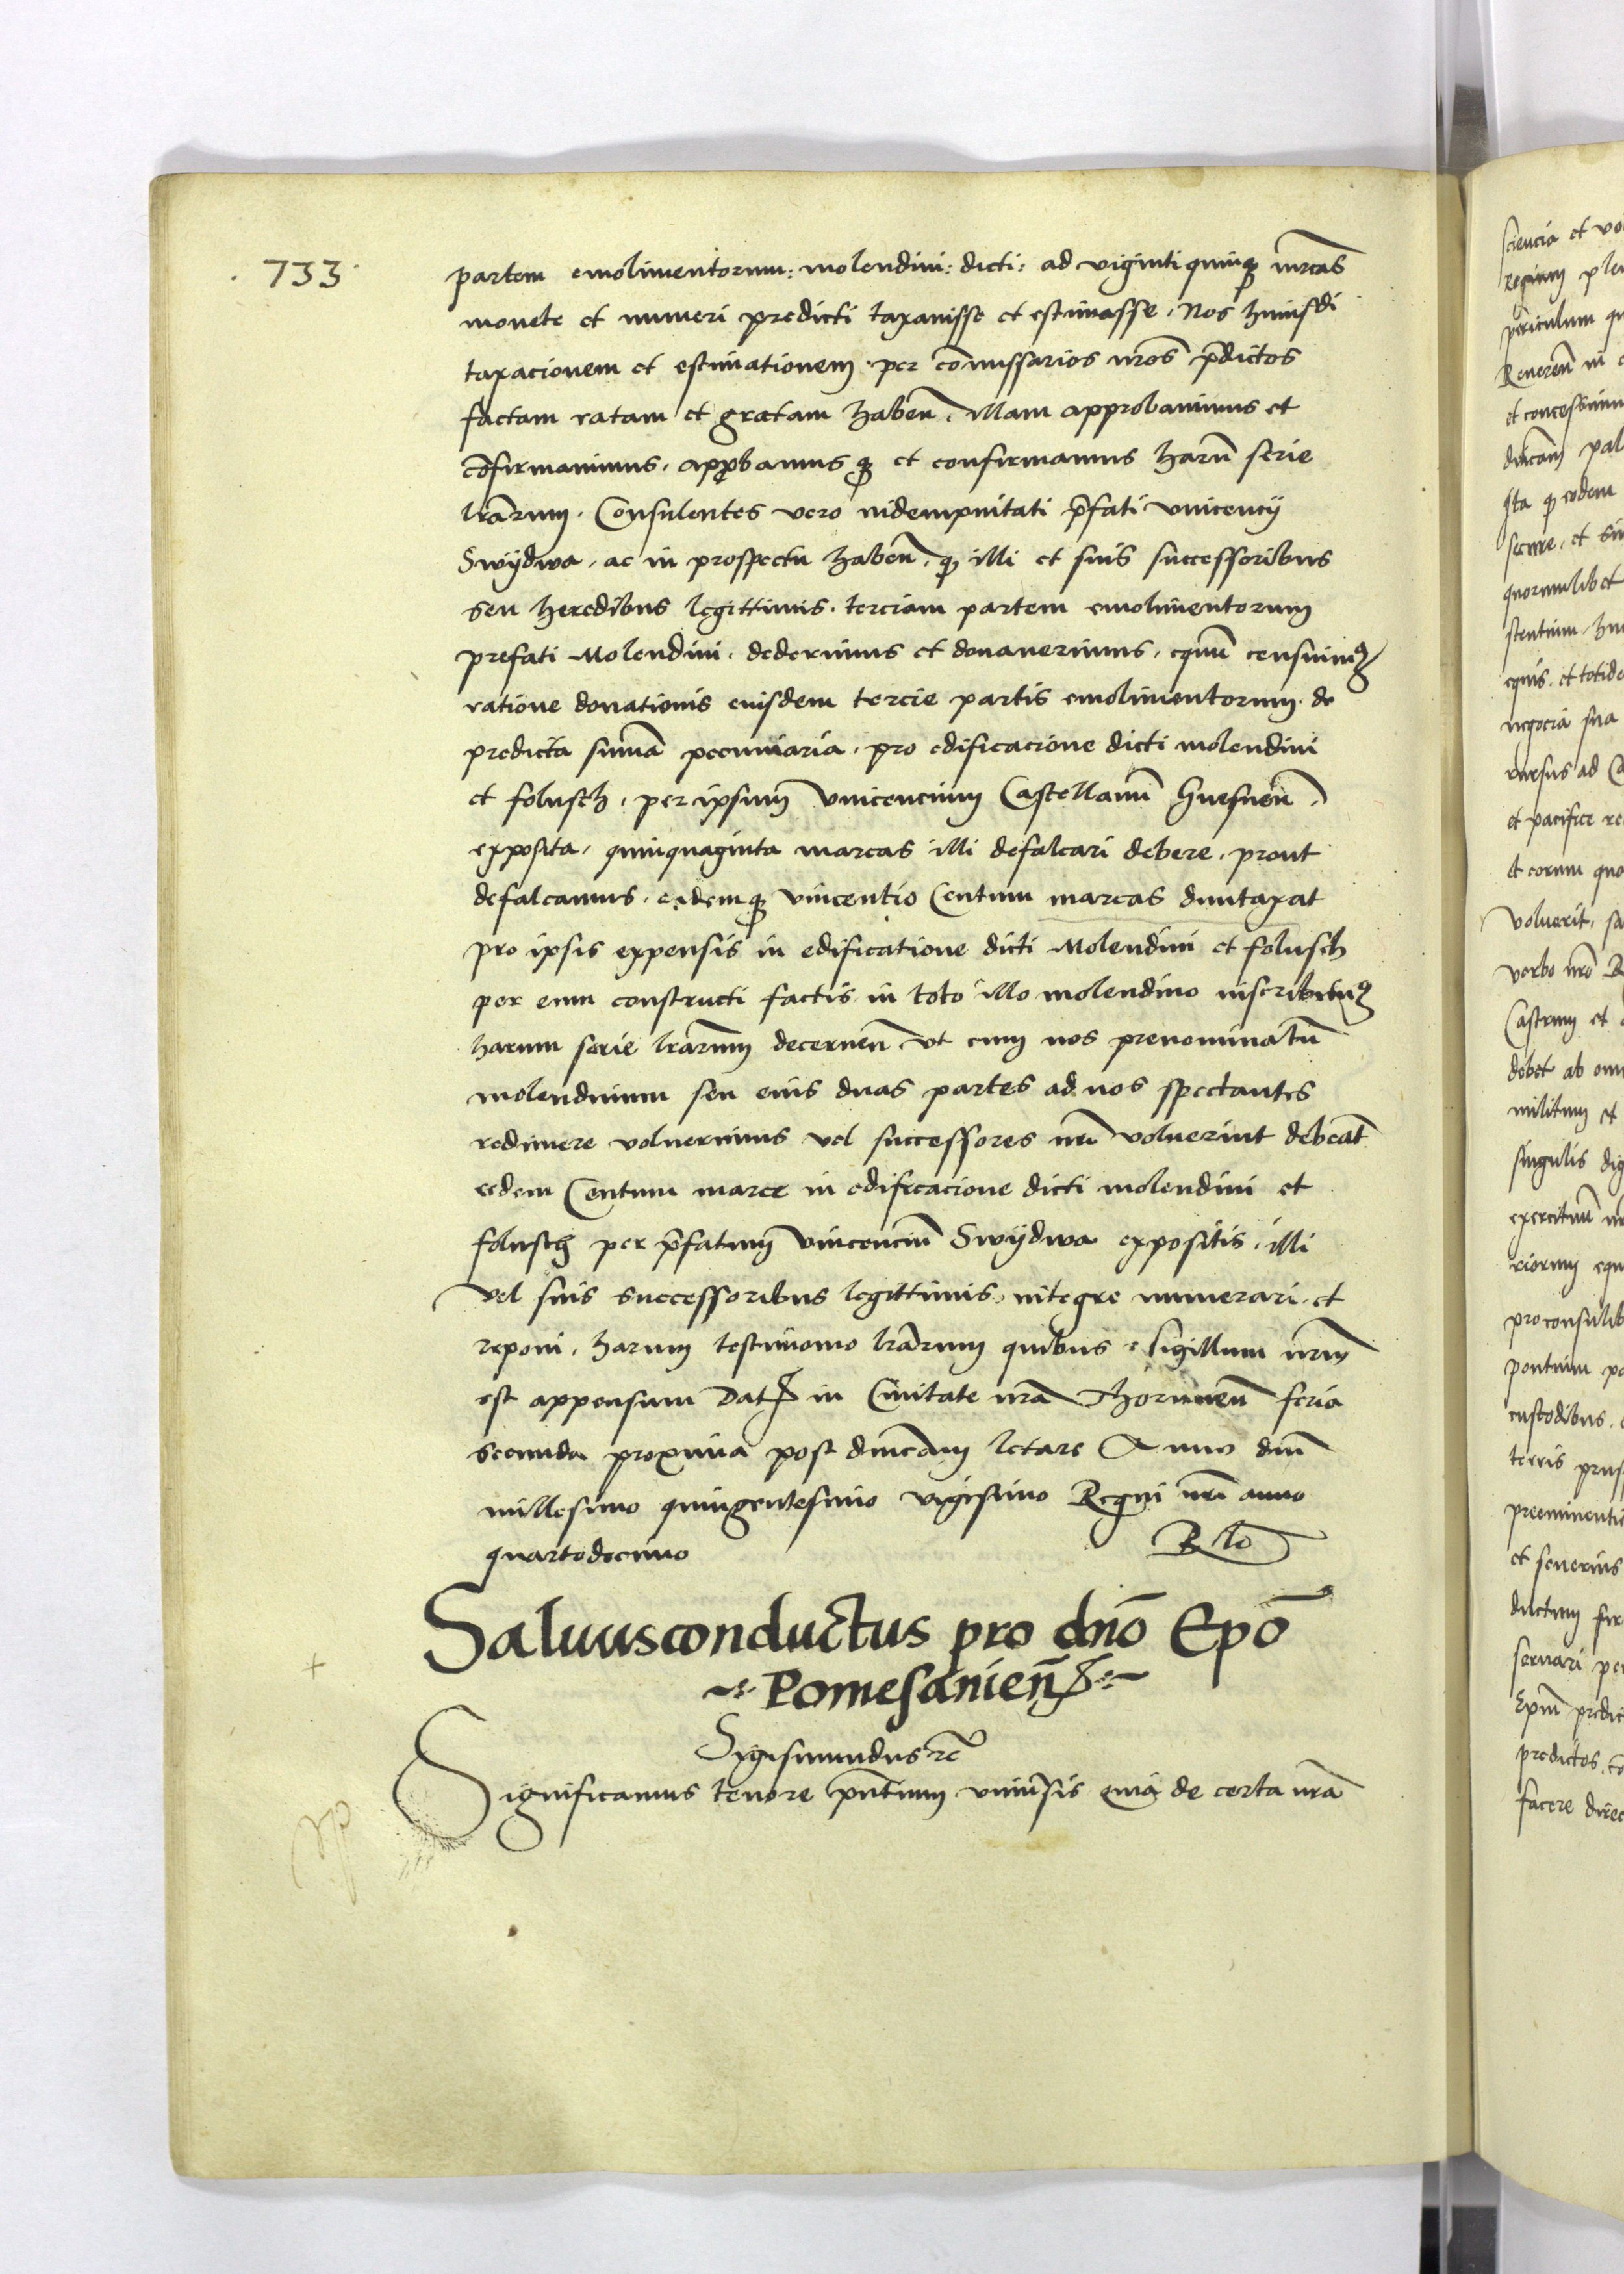 733
partem emolimentorum: molendini: dicti: ad viginti quinq mrcas
monete et numeri predicti taxauisse et estimasse, Nos huiusdi
taxacionem et estimationem per comissarios nros pdictos
factam ratam et gratam haben, illam approbauimus et
confirmauimus, appbamus q et confirmamus haru serie
lrarum. Consulentes vero indempnitati pfati vincency
Swÿdwa, ac in prospectu haben, q illi et suis successoribus
seu heredibus legittimis terciam partem emolimentorum
prefati Molendini dederimus et donauerimus, equu censuim9
ratione donationis eiusdem tercie partis emolimentorum de
predicta suma pecuniaria, pro edificacione dicti molendini
et folusch, per ipsum vincencium Castellanu Gnesnen,
exposita, quinquaginta marcas illi defalcari debere, prout
defalcamus, eidemq vincentio Centum marcas duntaxat
pro ipsis expensis in edificatione dicti Molendini et folusch
per eum constructi factis in toto illo molendino inscribim9
harum serie lrarum decernen vt cum nos prenominatu
molendinum seu eius duas partes ad nos spectantes
redimere voluerimus vel successores nri voluerint debeat
eedem Centum marce in edificacione dicti molendini et
folusch per pfatum Vincenciu Swÿdwa expositis, illi
vel suis successoribus legittimis integre numerari et
reponi, harum testimonio lrarum quibus sigillum nrm
est appensum Dat in Ciuitate nra Thorunen feria
secunda proxima post dnicam letare Anno dni
millesimo quingentesimo vigesimo Regni nri anno
quartodecimo
Saluusconductus pro dno Epo
Pomesanien
Sigismundus rc
Significamus tenore pntium vniusis quia de certa nra
sciencia et
periculum
Reueren in
et concessimus
Ita q eodem
secure, et
quorumlibet
equis, et
negocia sua
rursus ad
et pacifice
et eorum
voluerit,
verbo nro
Castrum et
debet ab
militum et
singulis
exercituu
proconsulib
custodibus,
terris
et
seruari
Epm
predictos,
facere